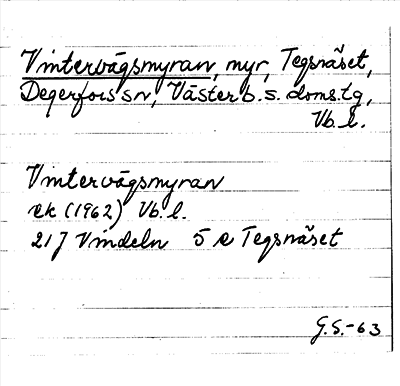 Vintervägsmyran, myr, Tegsnäset,
Degerfors sn, Västerb. s. doms.tg,
Vb. l.
Vintervägsmyran
ek (1962) Vb. l.
21 J Vindeln 5 e Tegsnäset
G.S.-63